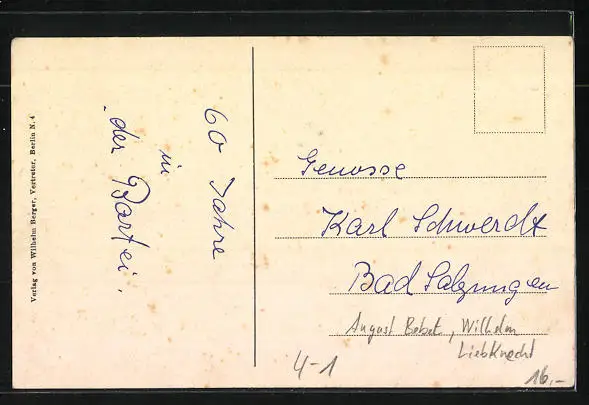 Verlag von Wilhelm Berger, Vertretur, Berlin N. 4
60 Jahre
in
der Partei.
Genosse
Karl Schwerdt
Bad Salzungen
August Bebel, Wilhelm
Liebknecht
4-1
16,-